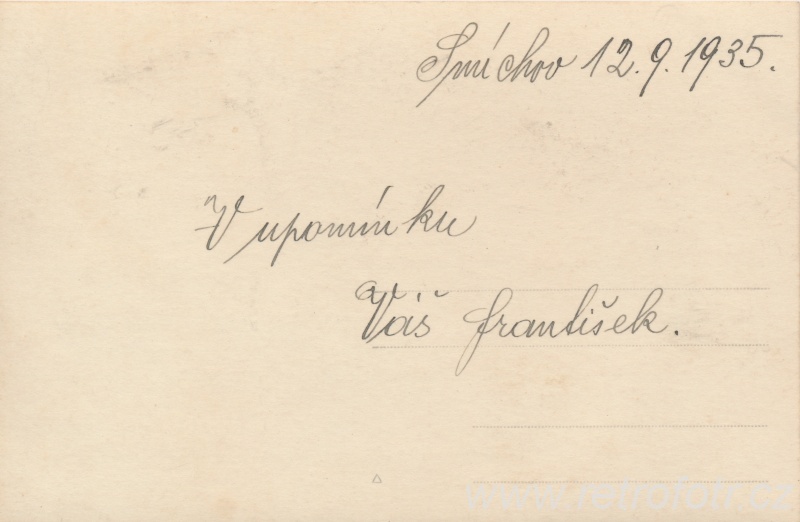 Smíchov 12.9.1935.
V upomínku
Váš František.
www.retrofotr.cz